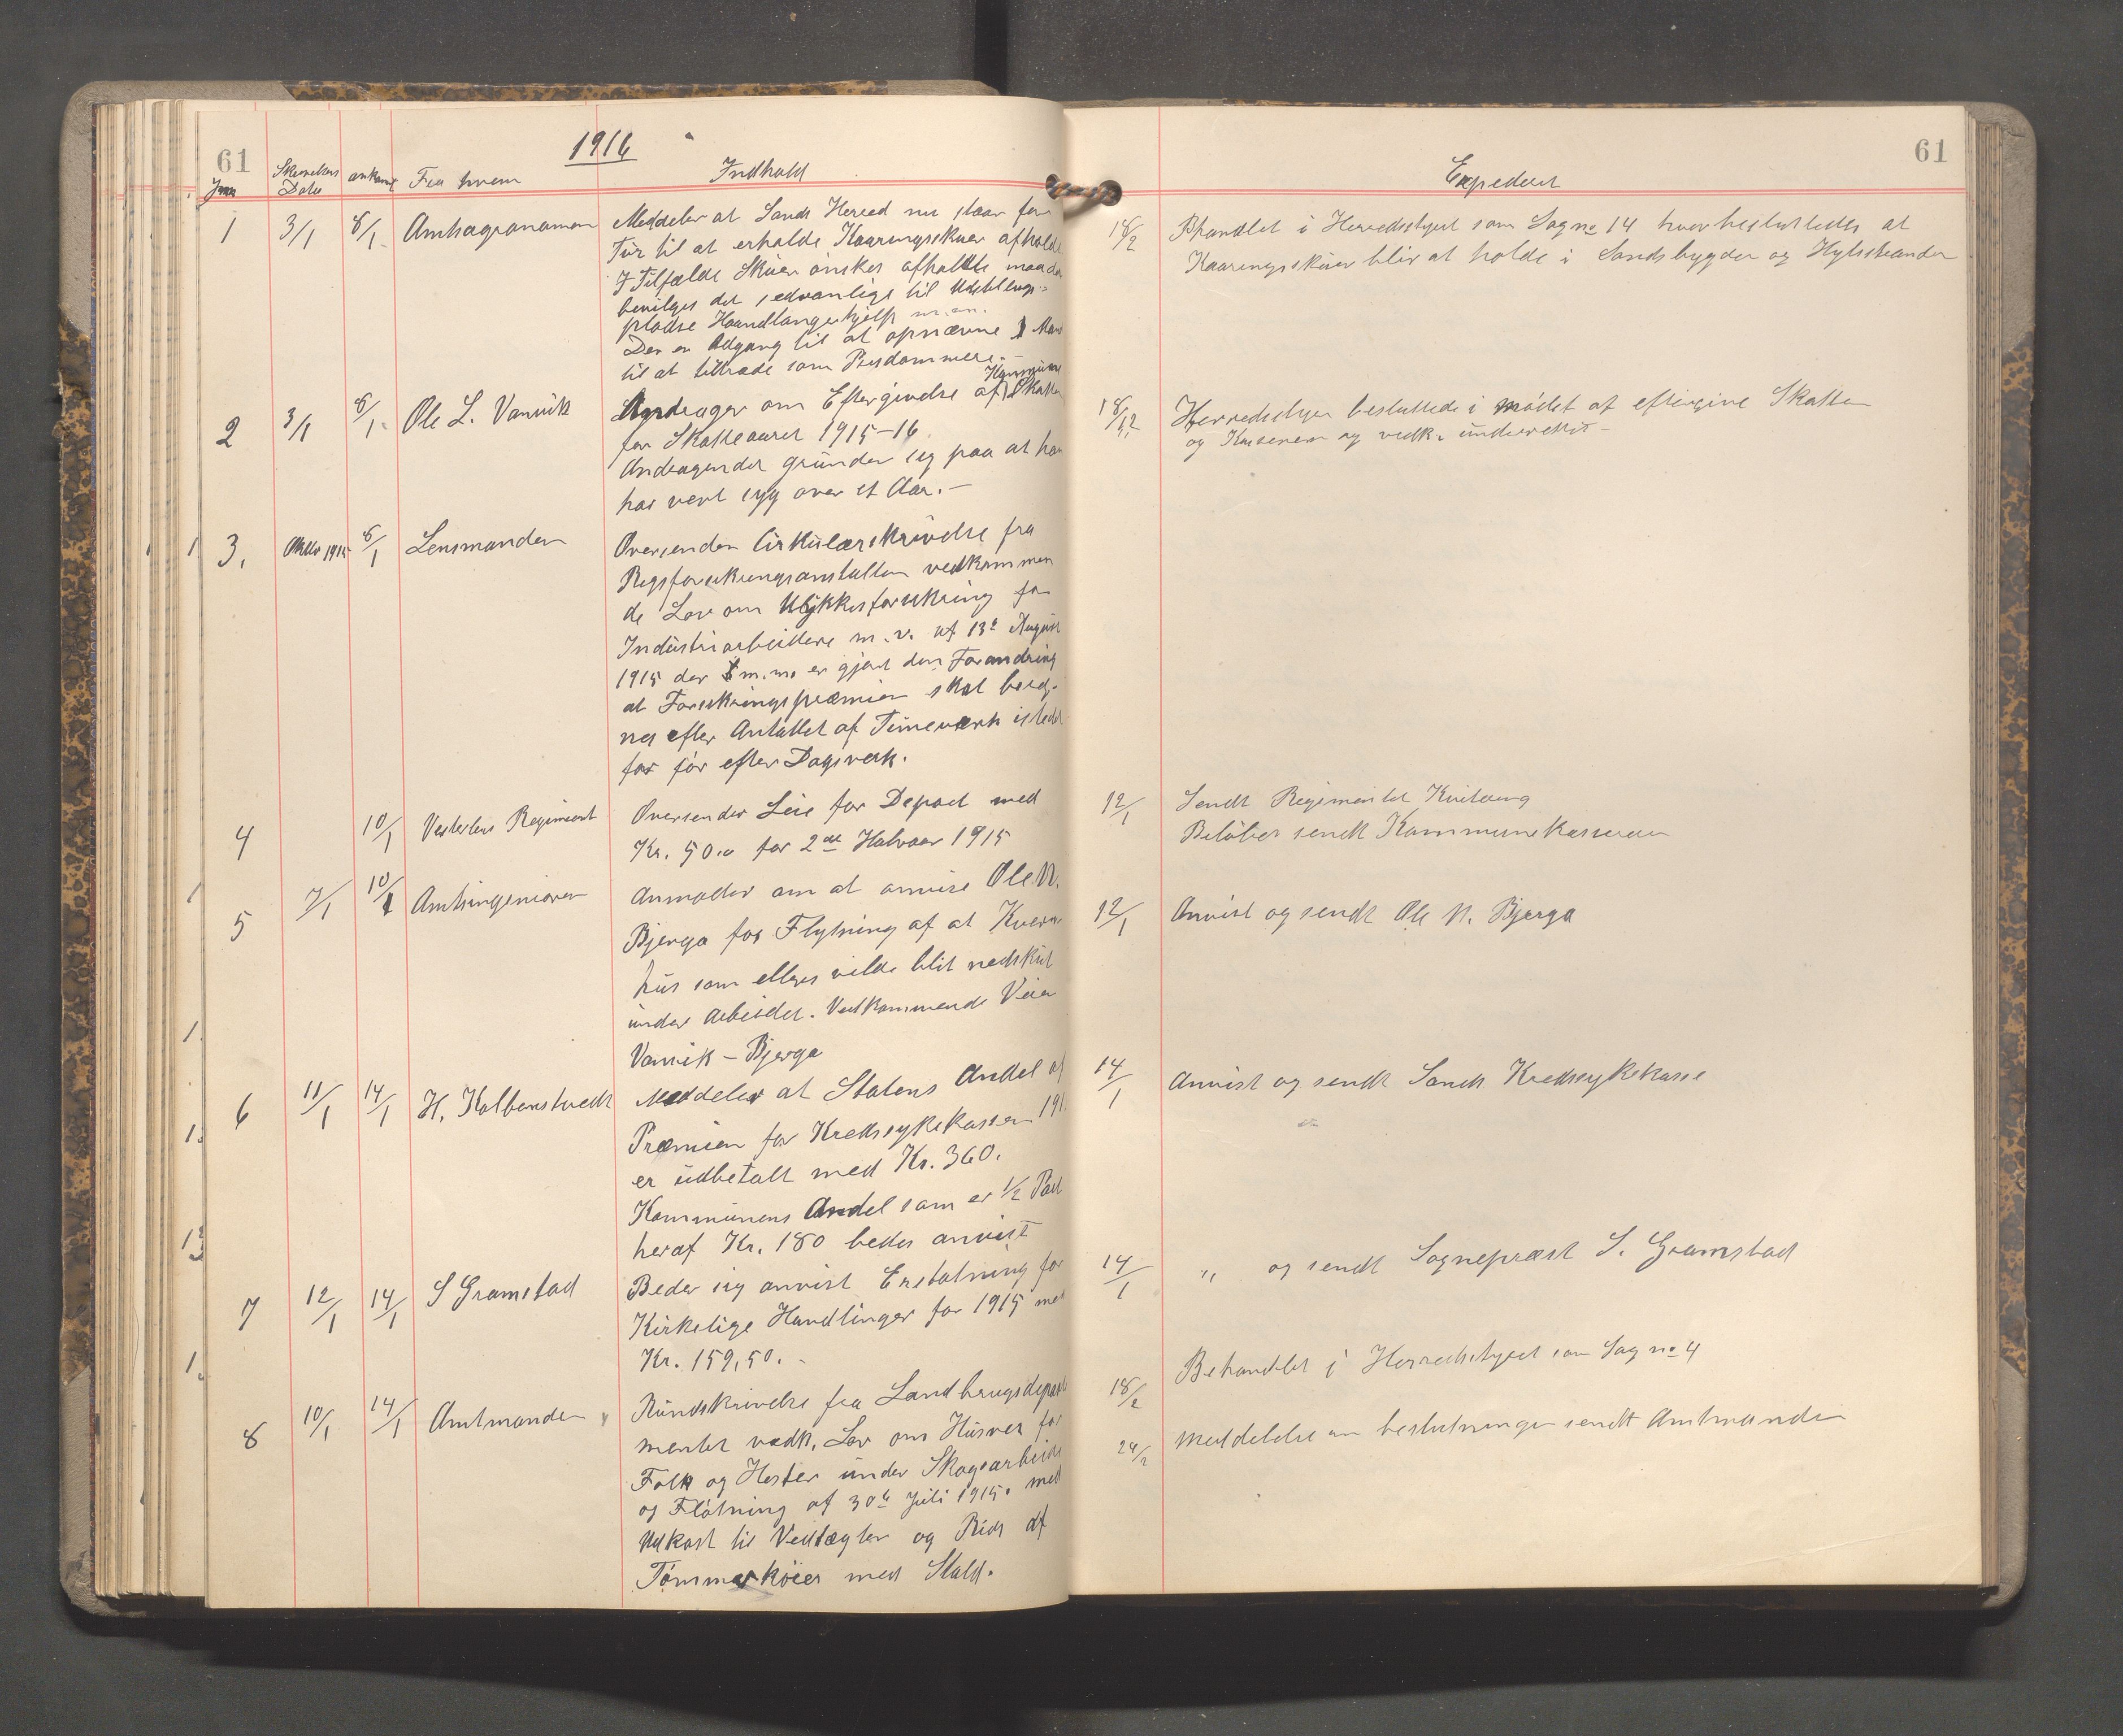 61
1916
Skrivelsens
Jnr Dato ankomst Fra hvem Indhold
1 3/1 8/1 Amtsagronomen Meddeler at Sands Herred nu staar for
Tur til at erholde Kaaringsskuer afholdt
I Tilfælde Skuer ønskes afholdte maa der
bevilges det sedvanlige til Udstillings-
pladse Haandlangerhjelp m.m.
Der er Adgang til at opnævne 1 Mand
til at tiltræde som Bisdommere.-
2 3/1 8/1 Ole L. Vanvik Andrager om Eftergivelse af Kommune Skatten
for Skatteaaret 1915-16.
Andragendet grunder sig paa at han
har vert syg over et Aar.-
3. Oktbr 1915 8/1 Lensmanden Oversender Cirkulærskrivelse fra
Rigsforsikringsanstalten vedkommen
de Lov om Ulykkesforsikring for
Industriarbeidere m.v. af 13de August
1915 der m.m. er gjort den Forandring
at Forsikringspræmien skal bereg-
nes efter Antallet af Timeværk istedet
for før efter Dagsverk.
4 10/1 Vesterlens Regiment Oversender Leie for Depot med
Kr. 50.00 for 2det Halvaar 1915
5 7/1 10/1 Amtsingeniøren Anmoder om at anvise Ole N.
Bjerga for Flytning af et Kvern
hus som ellers vilde blit nedskudt
under Arbeidet. Vedkommende Veien
Vanvik - Bjerga
6 11/1 14/1 H. Kolbenstvedt Meddeler at Statens Andel af
Præmien for Kredssykekassen 191
er udbetalt med Kr. 360.
Kommunens Andel som er 1/2 Part
heraf Kr. 180 bedes anvist
7 12/1 14/1 S Gramstad Beder sig anvist Erstatning for
Kirkelige Handlinger for 1915 med
Kr. 159,50.-
8 10/1 14/1 Amtmanden Rundskrivelse fra Landbrugsdeparte
mentet vedk. Lov om Husvær for
Folk og Hester under Skogsarbeide
og Fløtning af 30te Juli 1915. med
Udkast til Vedtægter og Rids af
Tømmerkøier med Stald.
61
Expederet
18/2 Bhandlet i Herredsstyret som Sag no 14 hvor beslutledes at
Kaaringsskuer blir at holde i Sandsbygden og Hylsstranden
18/2 Herredsstyret besluttede i mødet at eftergive Skatten
og Kasseren og vedk. underrettet -
12/1 Sendt Regimentet Kvitering
Beløbet sendt Kommunekassereren
12/1 Anvist og sendt Ole N. Bjerga
14/1 Anvist og sendt Sands Kredssykekasse
14/1 " og sendt Sogneprest S. Gramstad
18/2 Behandlet i Herredsstyret som Sag no 4
24/2 Meddelelse om beslutningen sendt Amtmanden